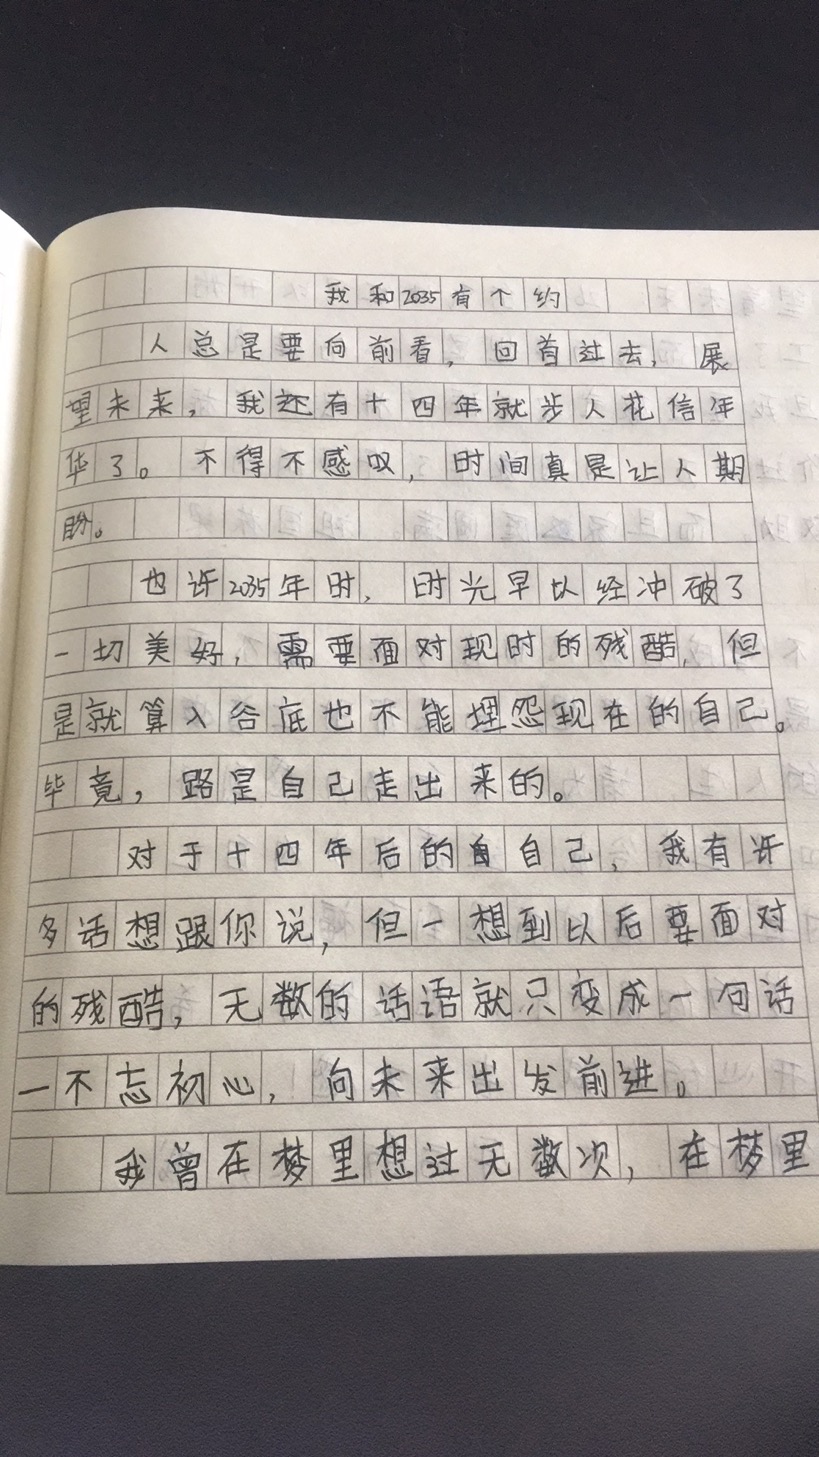 我和2035有个约
人总是要向前看，回首过去，展
望未来，我还有十四年就步入花信年
华了。不得不感叹，时间真是让人期
盼。
也许2035年时，时光早以经冲破了
一切美好，需要面对现时的残酷，但
是就算入谷底也不能埋怨现在的自己。
毕竟，路是自己走出来的。
对于十四年后的自己，我有许
多话想跟你说，但一想到以后要面对
的残酷，无数的话语就只变成一句话
一不忘初心，向未来出发前进。
我曾在梦里想过无数次，在梦里